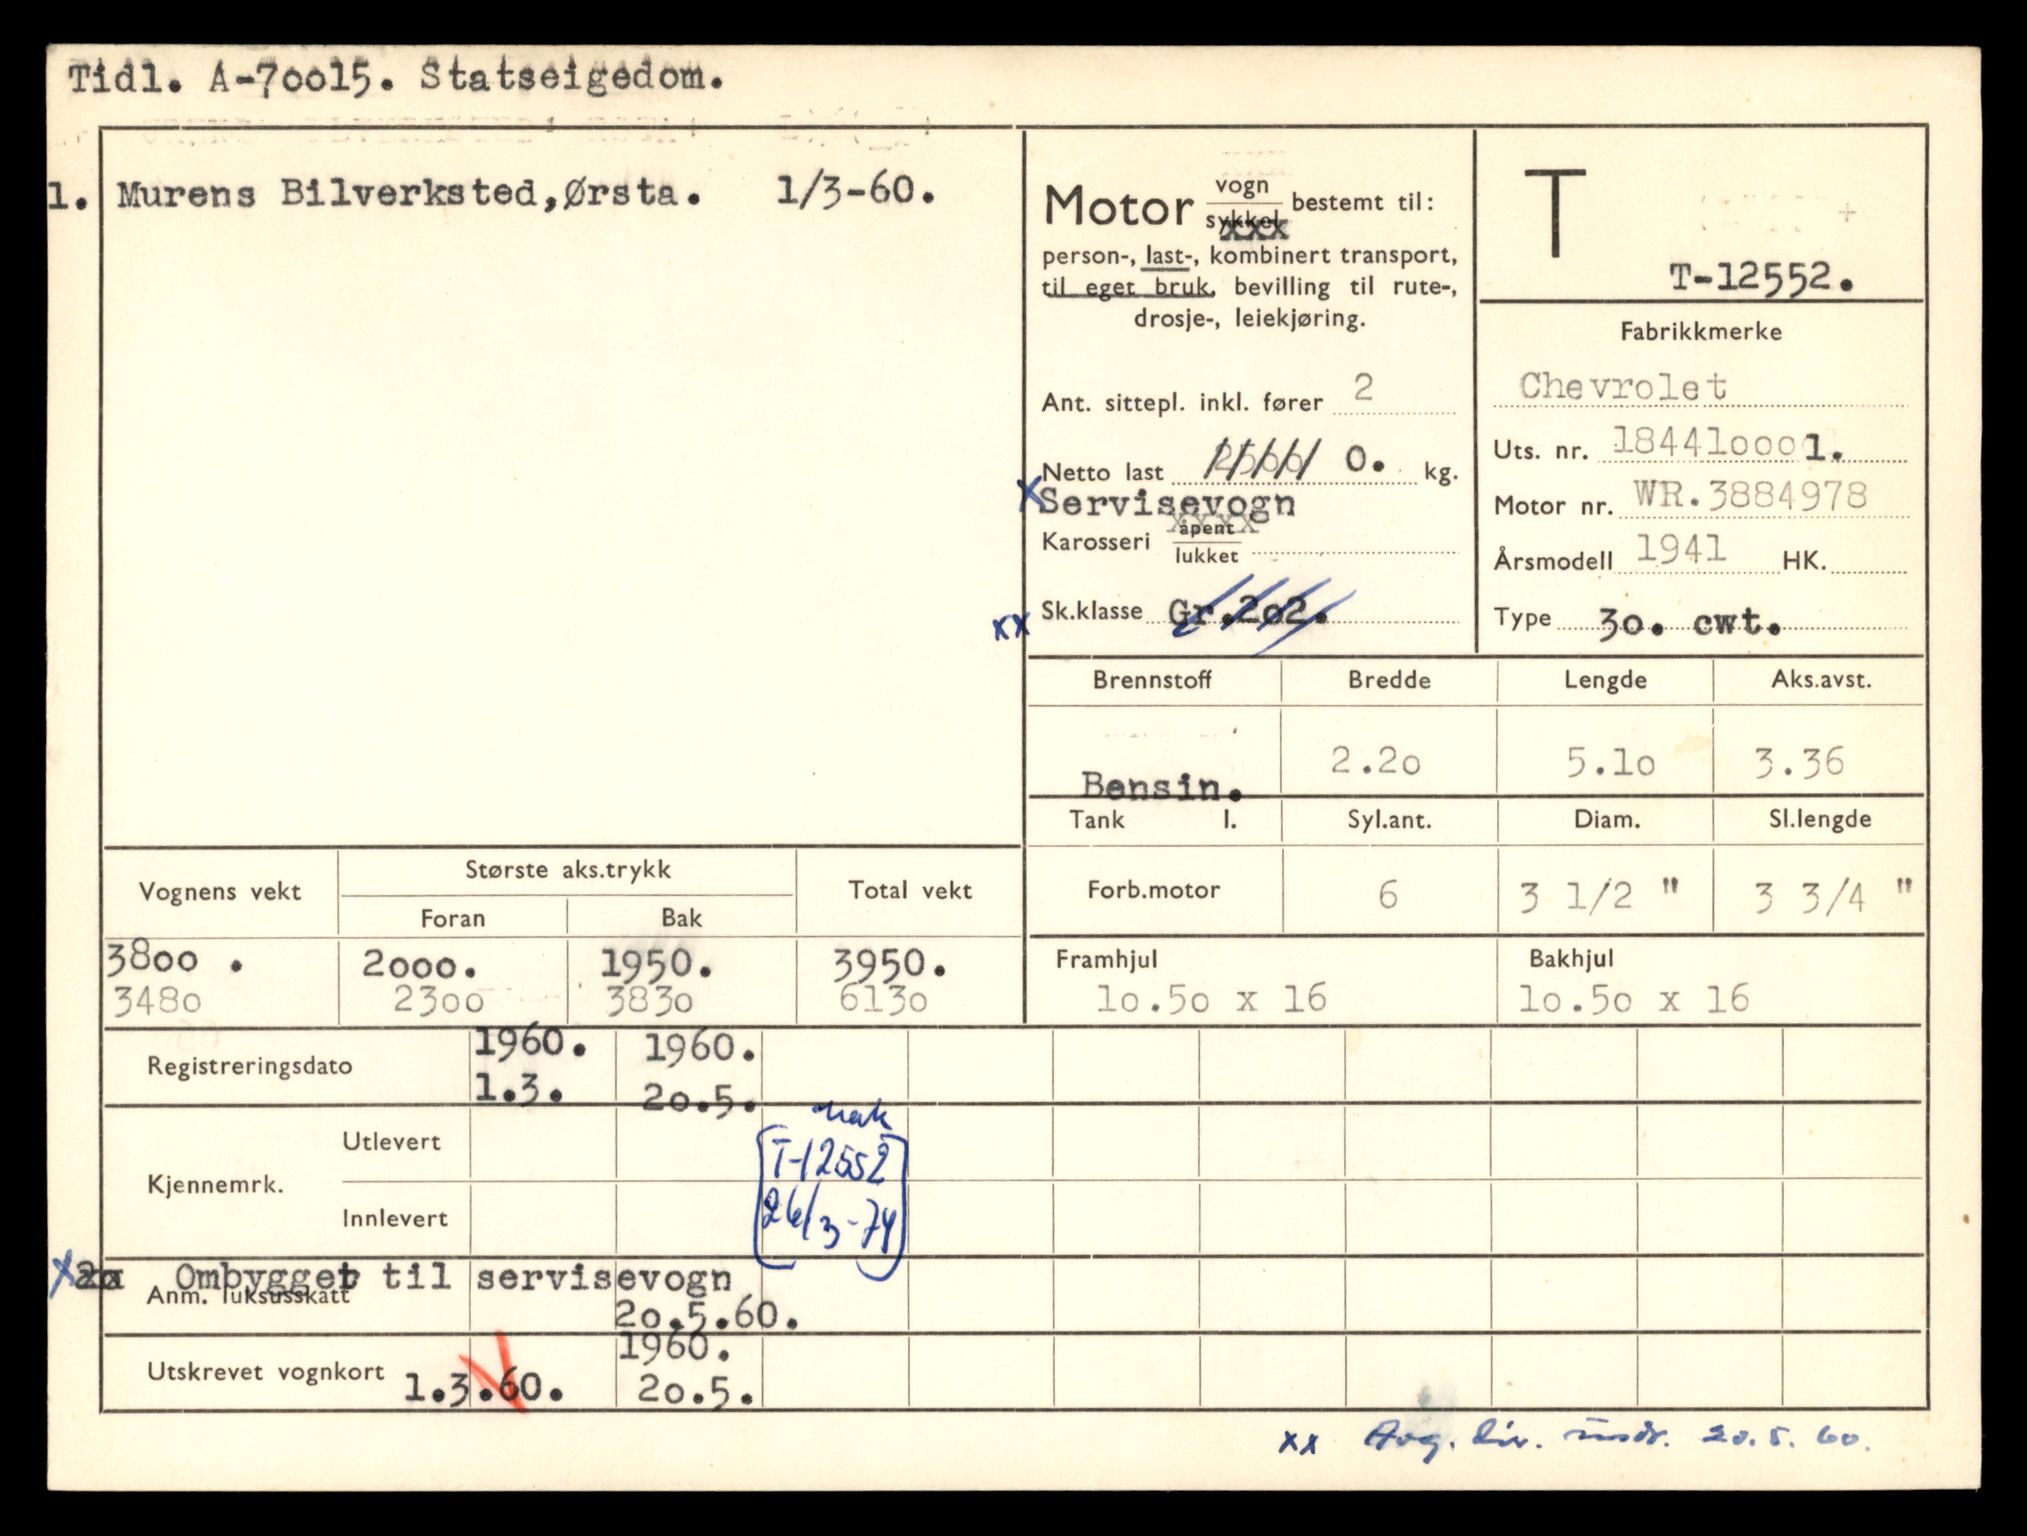 Tidl. A-70015. Statseigedom.
1. Murens Bilverksted, Ørsta. 1/3-60.
Motor vogn sykkel bestemt til:
person-, last-, kombinert transport,
til eget bruk, bevilling til rute-,
drosje-, leiekjøring.
T
T-12552.
Ant. sittepl. inkl. fører 2
Netto last 0. kg.
x Servisevogn
Karosseri åpent lukket
xx Sk.klasse Gr.202.
Fabrikkmerke
Chevrolet
Uts. nr. 184410001.
Motor nr. WR.3884978
Årsmodell 1941 HK.
Type 30. cwt.
Brennstoff Bredde Lengde Aks.avst.
Bensin. 2.20 5.10 3.36
Tank l. Syl.ant. Diam. Sl.lengde
Forb.motor 6 3 1/2 " 3 3/4 "
Framhjul Bakhjul
10.50 x 16 10.50 x 16
Vognens vekt Største aks.trykk Total vekt
Foran Bak
3800 . 2000. 1950. 3950.
3480 2300 3830 6130
Registreringsdato 1960. 1960.
1.3. 20.5.
Kjennemrk. Utlevert
Innlevert
T-12552
26/3-74
x Ombygget til servisevogn
Anm. luksusskatt
20.5.60.
Utskrevet vognkort 1.3.60. 1960.
20.5.
xx Avg. dir. 20.5.60.